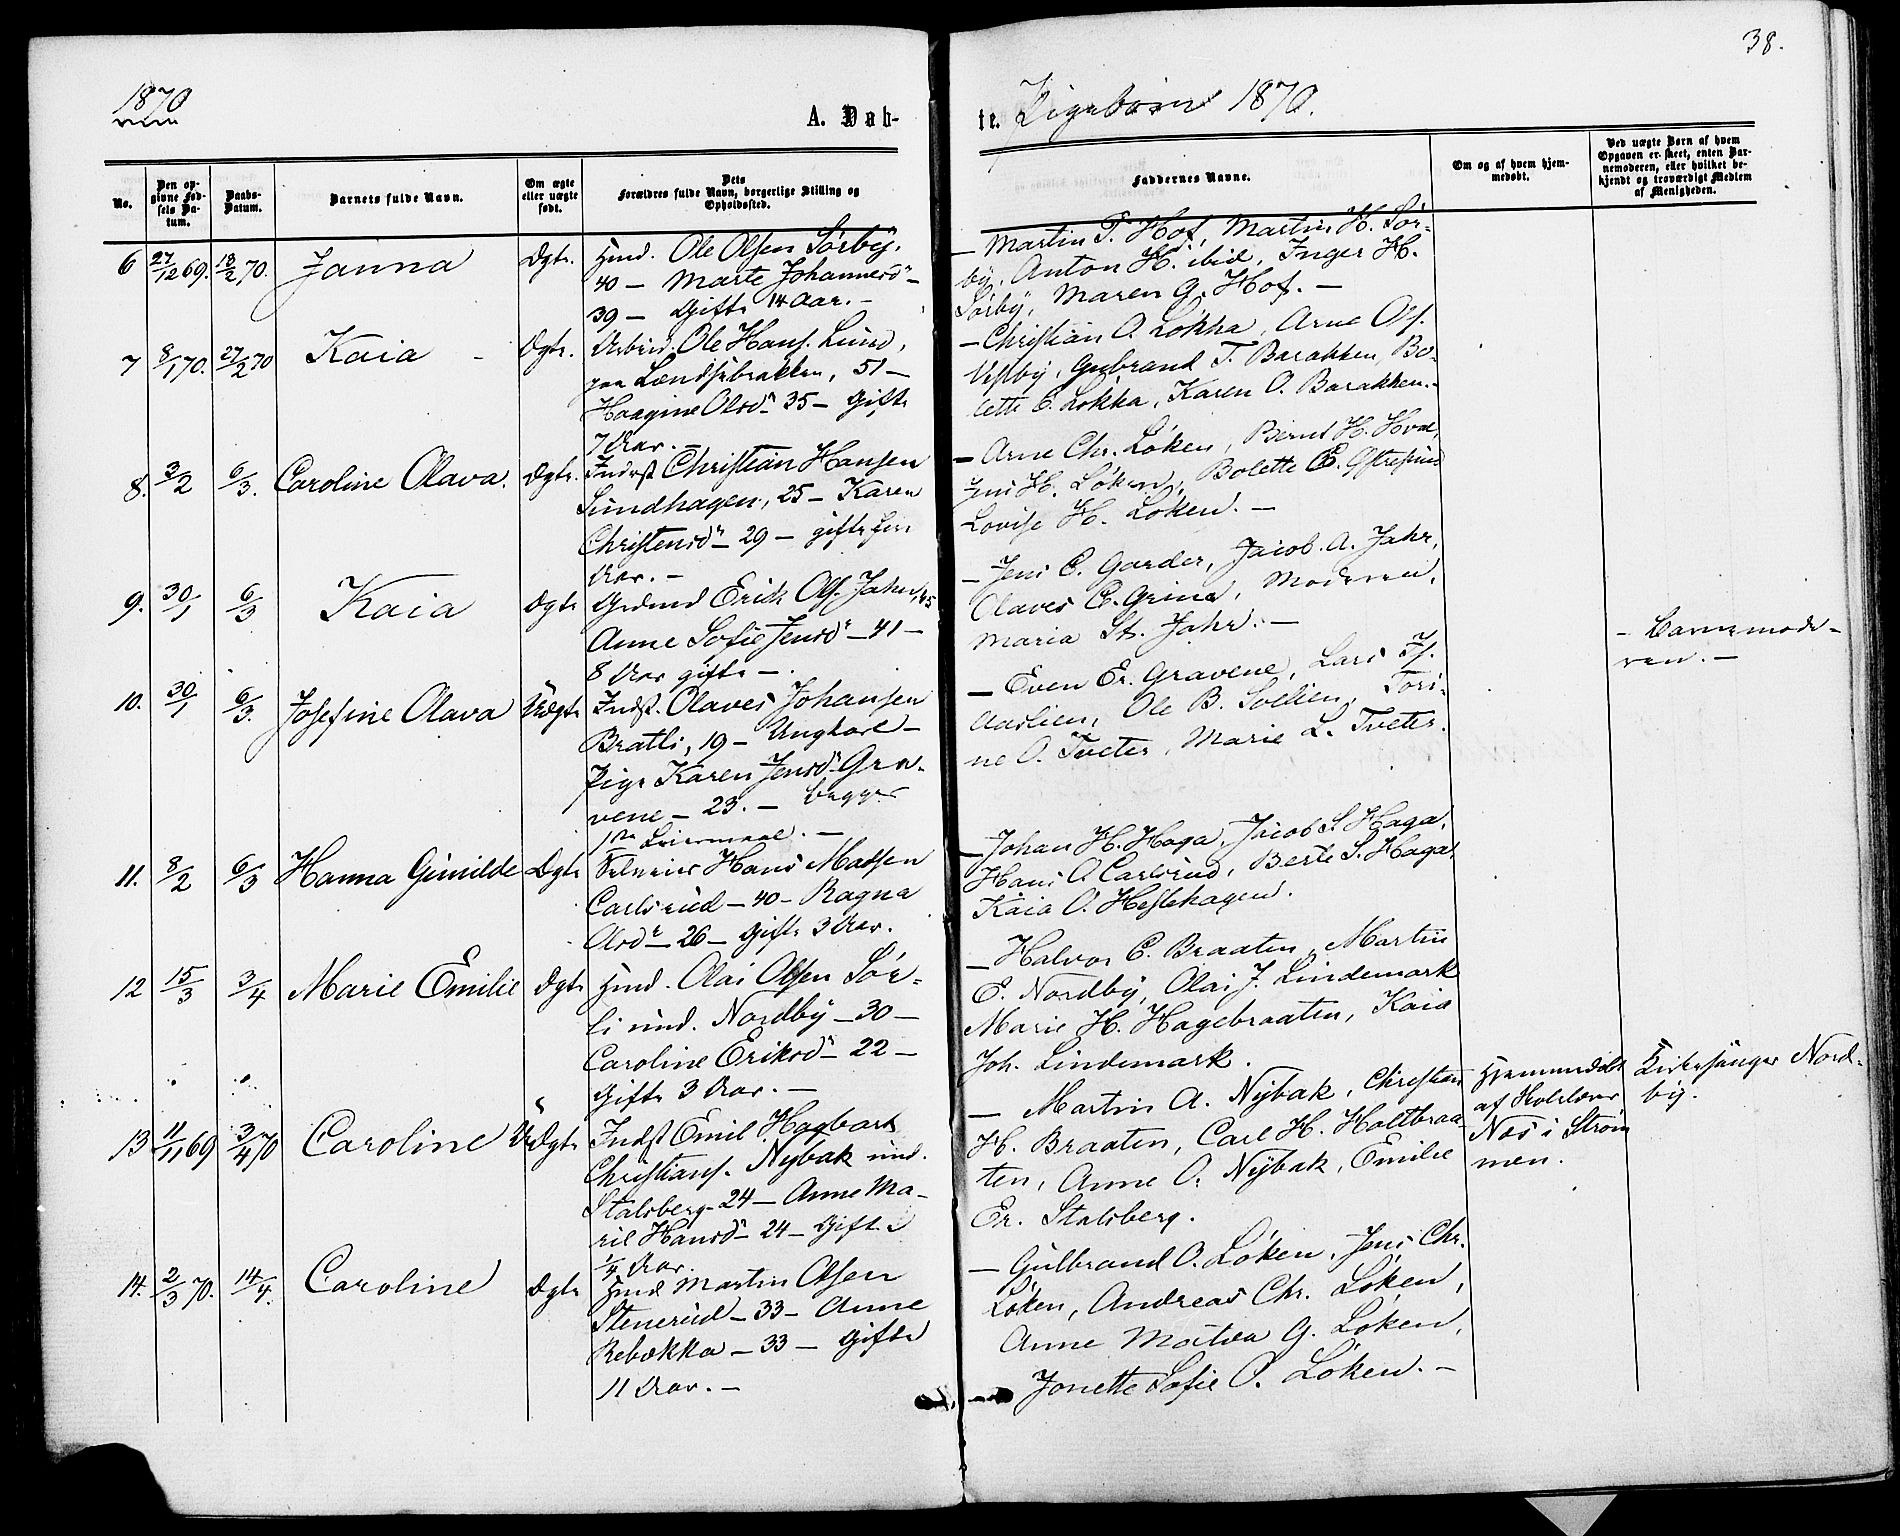 38.
1870
A. Døb-
te. Pigebørn 1870.
No.
Den op-
givne Fød-
sels Da-
tum.
Daabs-
Datum.
Barnets fulde Navn.
Om ægte
eller uægte
født.
Dets
Forældres fulde Navn, borgerlige Stilling og
Opholdssted.
Faddernes Navne.
Om og af hvem hjem-
medøbt.
Ved uægte Børn af hvem
Opgaven er skeet, enten Bar-
nemoderen, eller hvilket be-
kjendt og troværdigt Medlem
af Menigheden.
6 27/12 69. 13/2 70. Janna Ægte. Hmd. Ole Olsen Sörby,
40 – Marte Johannesd.
39 – Gifte 14 Aar. –
– Martin P. Hof, Martin H. Sör-
by, Anton H. ibid, Inger H.
Sörby, Maren G. Hof. –
7 8/1 70. 27/2 70 Kaia Ægte. Arbeid. Ole Hans. Lund,
paa Lændsebrakken, 51 –
Haagine Olsd. 35 – Gifte
7 Aar. –
– Christian O. Lökka, Arne Ols.
Vestby, Gubrand T. Barakken, Bo-
lette C. Lökka, Karen O. Barakken. –
8. 3/2 6/3. Caroline Olava. Ægte. Inderst Christian Hansen
Sundhagen, 25 – Karen
Christensd. – 29 – gifte
Aar. –
– Arne Chr. Löken, Bernt H. Hval,
Jens H. Löken, Bolette
Lovise H. Löken. –
9. 30/1 6/3 Kaia Ægte Grdmd Erik Ols. Jahr, 45
Anne Sofie Jensd. – 41 –
8 Aar gifte –.
– Jens C. Garder, Jacob A. Jahr,
Olaves C. Grina, Moderen,
Maria St. Jahr. –
10. 30/1 6/3. Josefine Olava Uægte Indst. Olaves Johansen
Bratli, 19 – Ungkarl –
Pige Karen Jensd. Gra-
vene – 23. – begges
1ste Leiermaal. –
– Even Er. Gravene, Lars
Aaslien, Ole B. Sollien, Tori-
ne O. Tveter, Marie L. Tveter.
– Barnemode-
ren. –
11. 8/2 6/3 Hanna Gunilde Ægte Selveier Hans Madsen
Carlsrud – 40 – Ragna
Olsd. – 26 – Gifte 3 Aar.
– Johan H. Haga, Jacob S. Haga,
Hans O. Carlsrud, Berte S. Haga,
Kaia O. Heslehagen.
12 15/3 3/4 Marie Emilie Ægte Hmd. Olai Olsen Sör-
li und. Nordby – 30 –
Caroline Eriksd. – 22 –
Gifte 3 Aar. –
– Halvor C. Braaten, Martin
E. Nordby, Olai J. Lindemark
Marie H. Hagebraaten, Kaia
Joh. Lindemark.
13 11/11 69 3/4 70 Caroline Ægte Indst Emil Hagbart
Christians. Nybak und.
Stalsberg – 24 – Anne Ma-
rie Hansd. – 24 – Gifte
1/4 Aar.
– Martin A. Nybak, Christian
H. Braaten, Carl H. Holtbraa-
ten, Anne O. Nybak, Emilie
Er. Stalsberg.
Hjemmedöbt
af Skolelærer
Næs i Ström
men.
Kirkesanger Nord-
by.
14. 2/3 70. 14/4. Caroline Ægte Hmd Martin Olsen
Stenerud – 33 – Anne
Rebekka – 33 – Gifte
11 Aar. –
– Gulbrand O. Löken, Jens Chr.
Löken, Andreas Chr. Löken,
Anne Matea G. Löken,
Jonette Sofie O. Löken. –